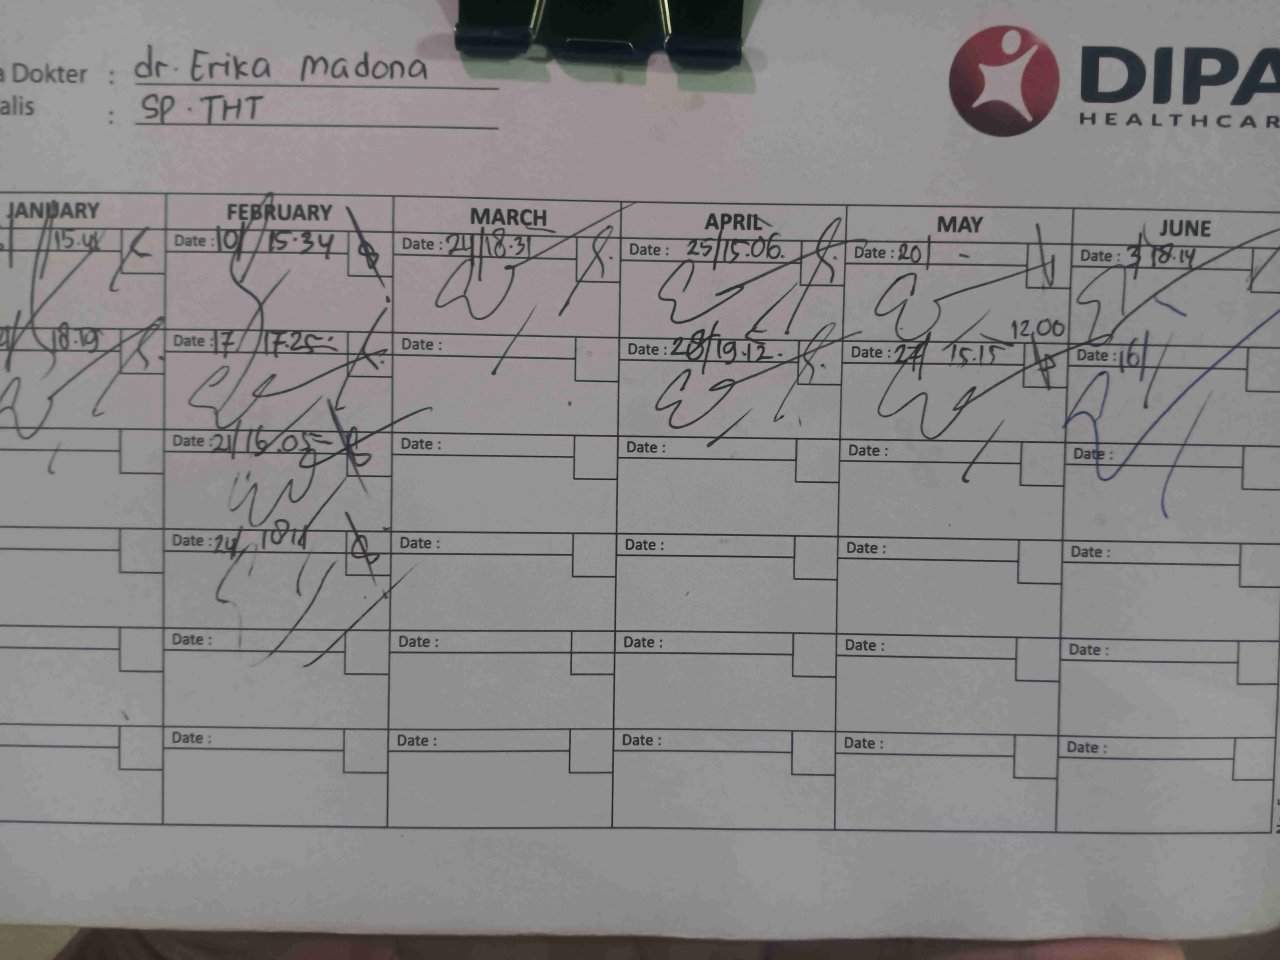 a Dokter : dr. Erika Madona
alis : SP. THT
DIPA
HEALTHCAR
JANUARY FEBRUARY MARCH APRIL MAY JUNE
15.41 Date : 10/ 15.34 Date : 24/18.31 Date : 25/15.06. Date : 20/ - Date : 3/18.14
12.00
18.19 Date : 17/ 17.25 Date : Date : 28/19.12. Date : 27/ 15.15 Date : 16/
Date : 21/16.05 Date : Date : Date : Date :
Date : 24/ Date : Date : Date : Date :
Date : Date : Date : Date : Date :
Date : Date : Date : Date : Date :